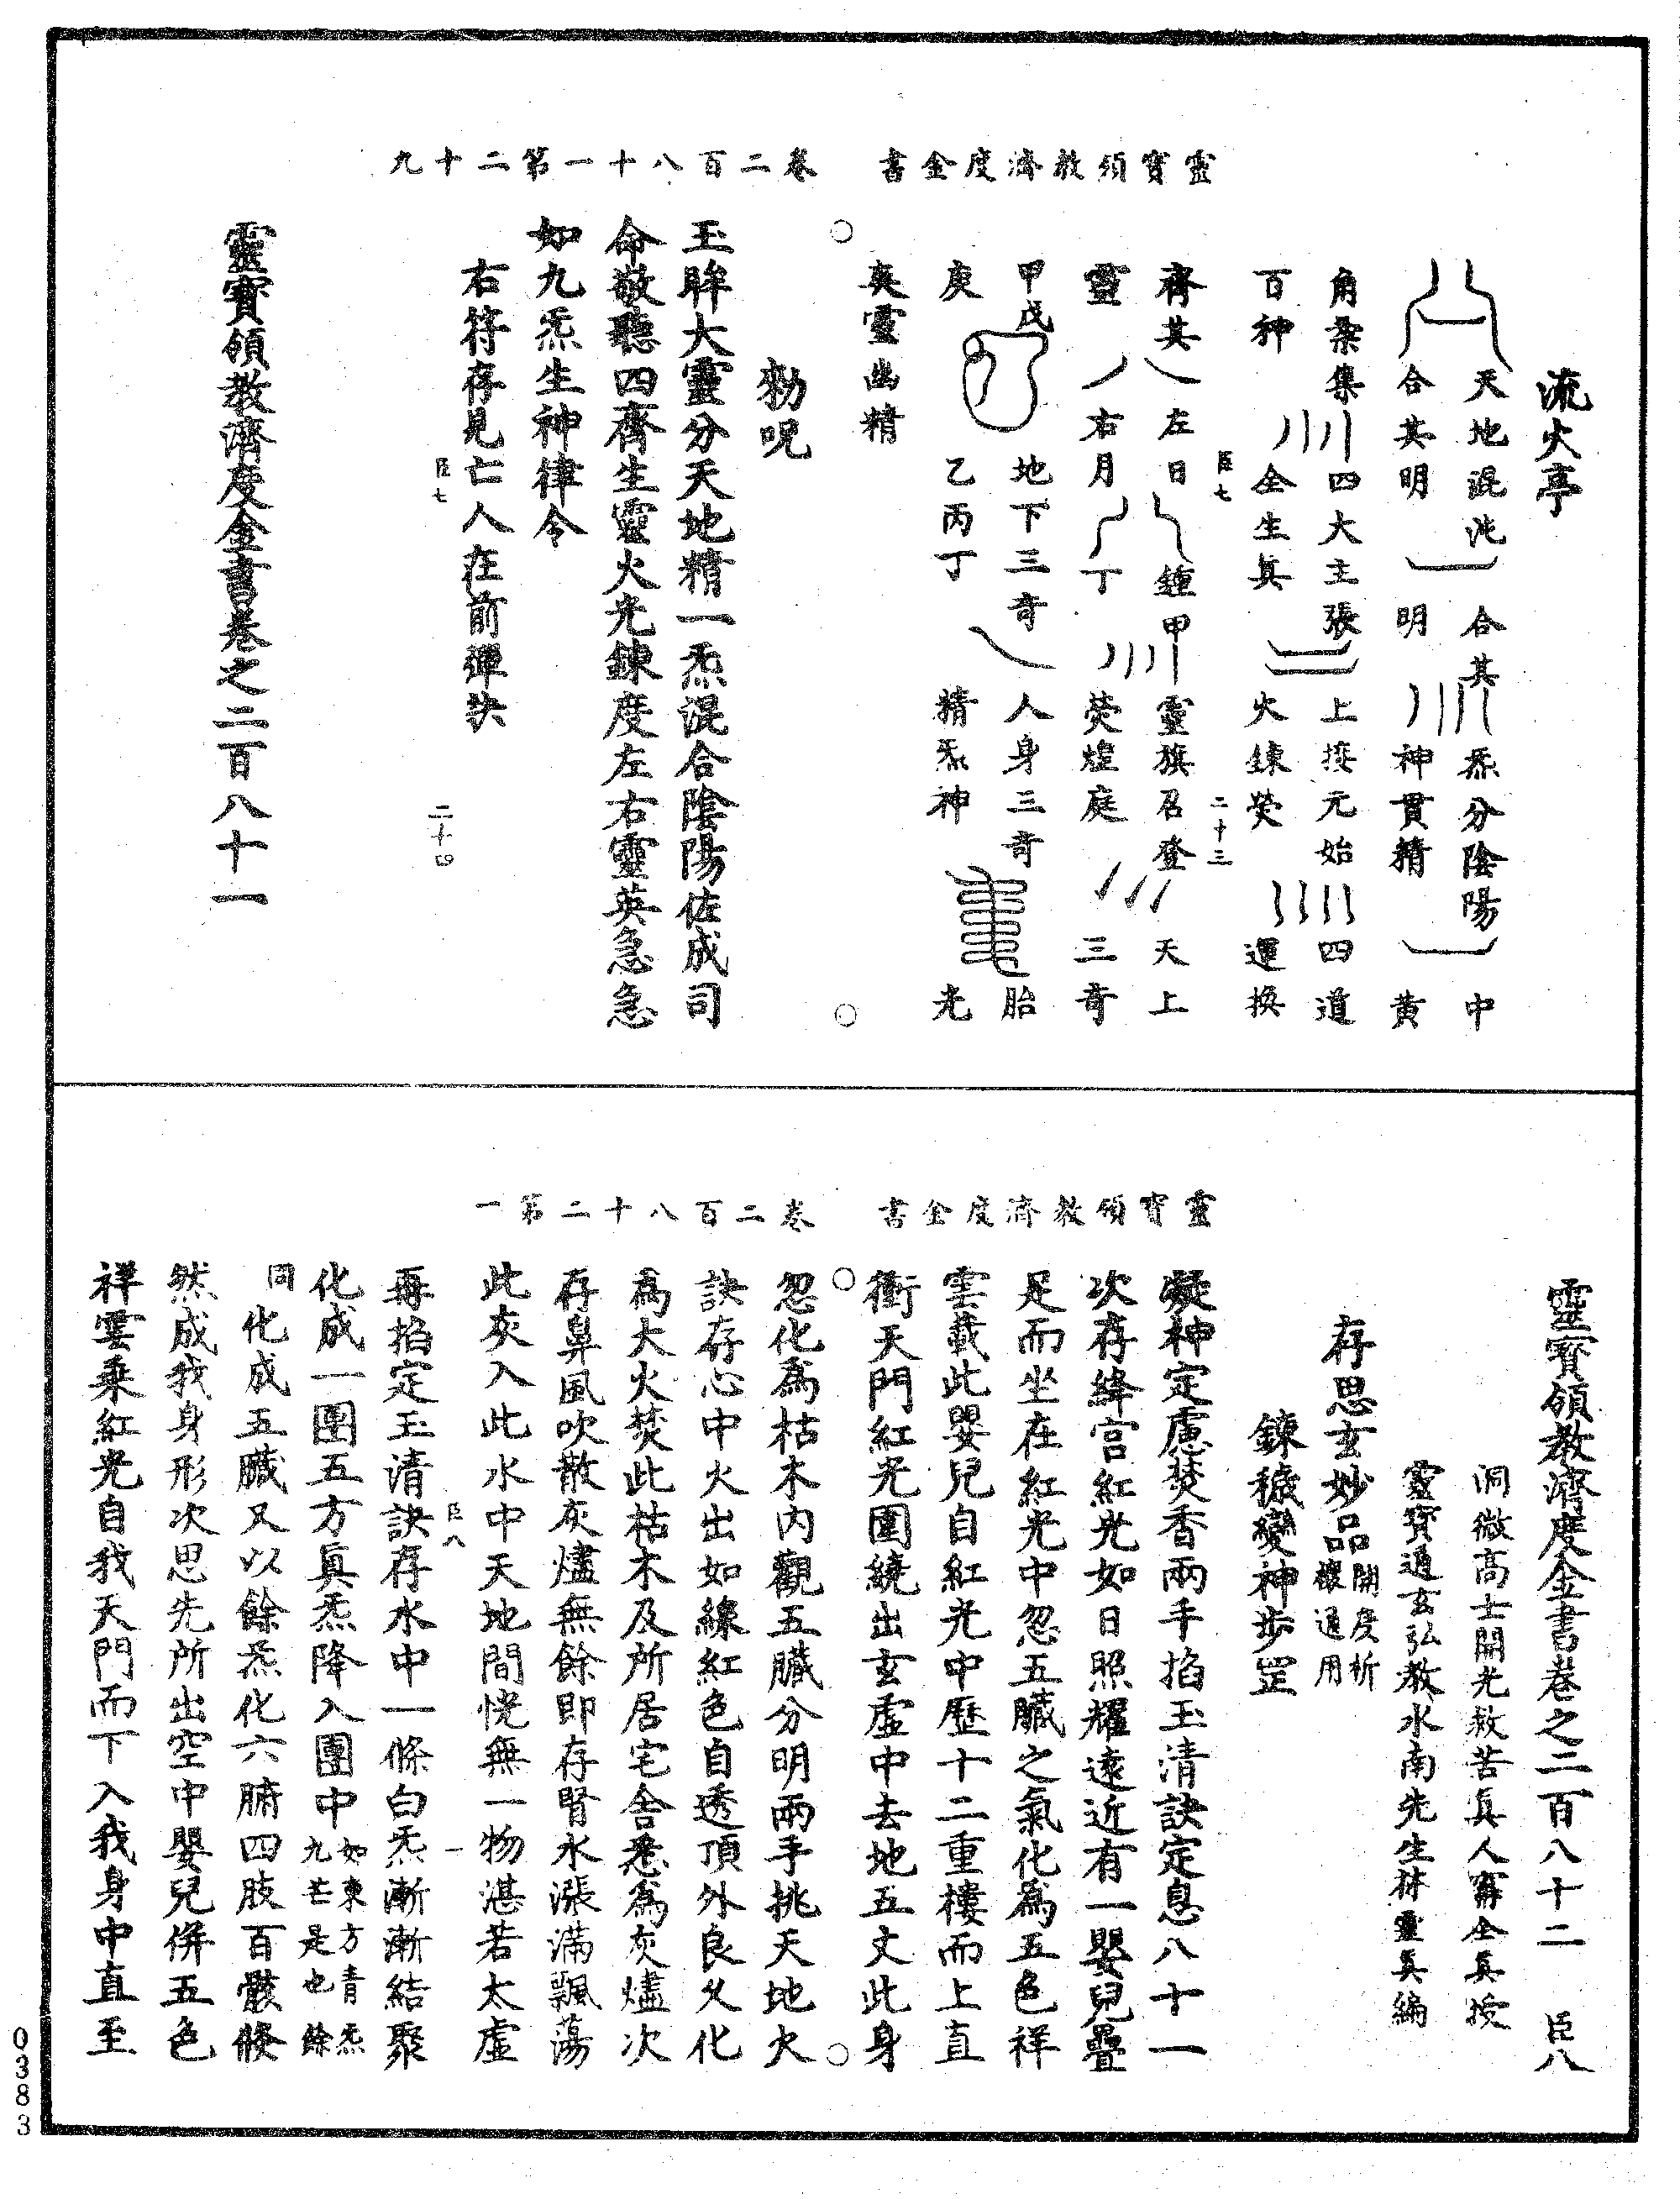 靈寶領教濟度金書　卷二百八十一第二十九
流火亭
天地混沌　合其　炁分陰陽　中
合其明　明　神貫精　黃
角桑集　四大主張　上接元始　四道
百神　全生眞　火鍊熒　運換
臣七　二十三
齊其　左日　鍾甲　靈旗召登　天上
靈　右月　丁　熒煌庭　三奇
甲戊　地下三奇　人身三奇　胎
庚　乙丙丁　精炁神　光
爽靈幽精
勑呪
玉眸大靈分天地精一炁混合陰陽佐成司
命敬聽四齊生靈火光鍊度左右靈英急急
如九炁生神律令
右符存見亡人在前彈訣
臣七　二十四
靈寶領教濟度金書卷之二百八十一
靈寶領教濟度金書　卷二百八十二第一
靈寶領教濟度金書卷之二百八十二　臣八
洞微高士開光救苦眞人甯全眞授
靈寶通玄弘敎水南先生林靈眞編
存思玄妙品開度祈禳通用
鍊穢變神步罡
凝神定慮焚香兩手掐玉清訣定息八十一
次存絳宮紅光如日照耀遠近有一嬰兒疊
足而坐在紅光中忽五臟之氣化爲五色祥
雲載此嬰兒自紅光中歷十二重樓而上直
衝天門紅光圍繞出玄虛中去地五丈此身
忽化爲枯木內觀五臟分明兩手挑天地火
訣存心中火出如線紅色自透頂外良久化
爲大火焚此枯木及所居宅舍悉爲灰燼次
存鼻風吹散灰燼無餘即存腎水漲滿飄蕩
此灰入此水中天地間恍無一物湛若太虛
臣八　一
再掐定玉清訣存水中一條白炁漸漸結聚
化成一團五方眞炁降入團中如東方青炁九芒是也餘同
化成五臟又以餘炁化六腑四肢百骸倏
然成我身形次思先所出空中嬰兒倂五色
祥雲乘紅光自我天門而下入我身中直至
0383